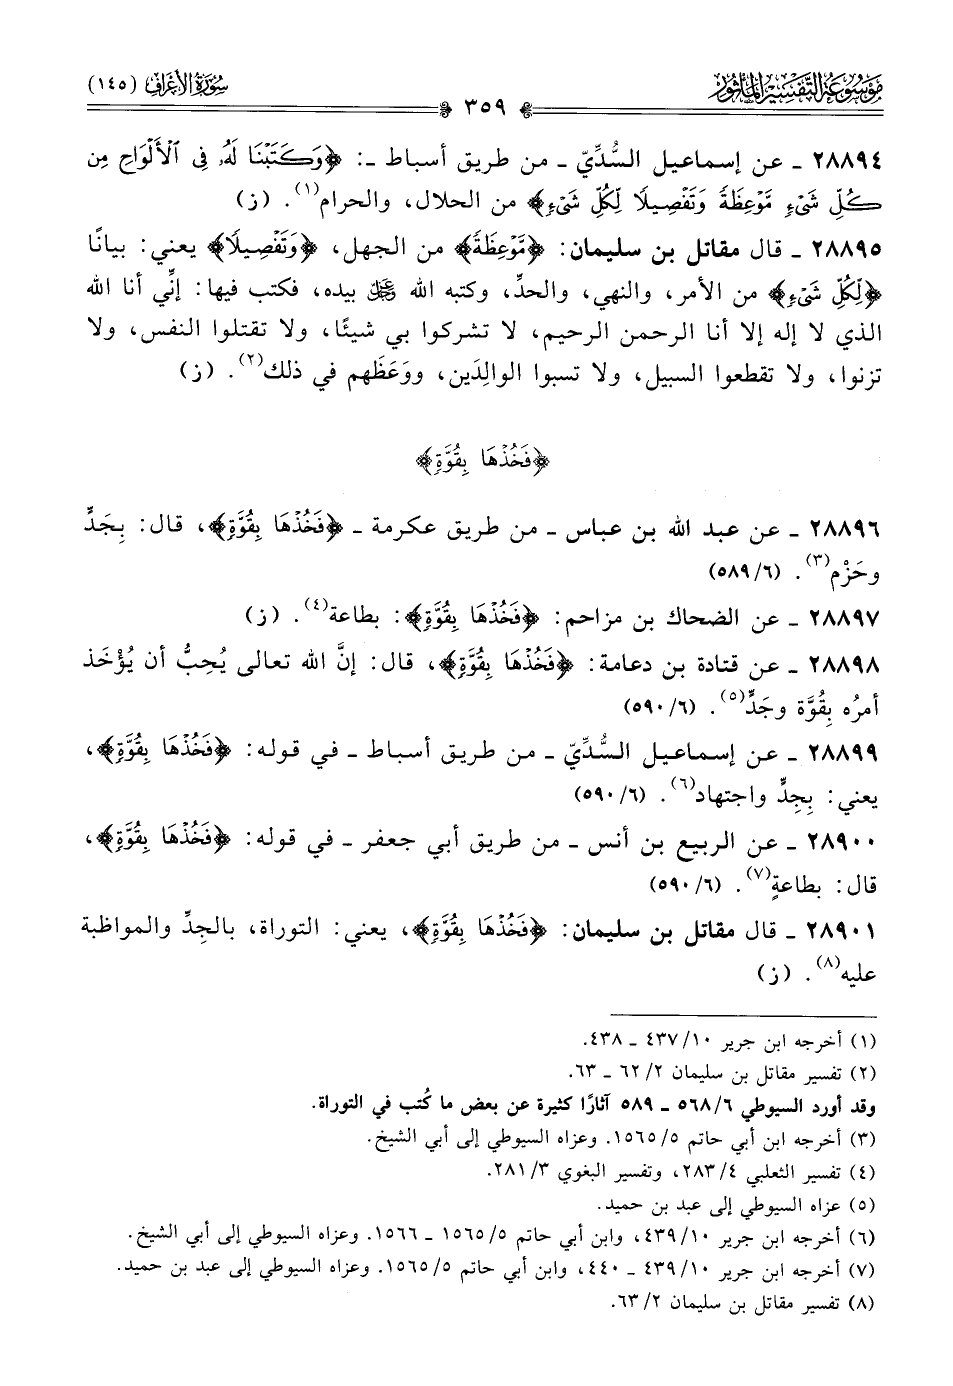 مَوْسُوعَةُ التَّفْسِيرِ المَأْثُورِ
سُورَةُ الأَعْرَافِ (١٤٥)
٣٥٩
٢٨٨٩٤ ـ عن إسماعيل السُّدِّيِّ ـ من طريق أسباط ـ: ﴿وَكَتَبْنَا لَهُۥ فِي ٱلْأَلْوَاحِ مِن
كُلِّ شَىْءٍ مَّوْعِظَةً وَتَفْصِيلًا لِّكُلِّ شَىْءٍ﴾ من الحلال، والحرام(١). (ز)
٢٨٨٩٥ ـ قال مقاتل بن سليمان: ﴿مَّوْعِظَةً﴾ من الجهل، ﴿وَتَفْصِيلًا﴾ يعني: بيانًا
﴿لِّكُلِّ شَىْءٍ﴾ من الأمر، والنهي، والحدِّ، وكتبه الله ﷿ بيده، فكتب فيها: إنِّي أنا الله
الذي لا إله إلا أنا الرحمن الرحيم، لا تشركوا بي شيئًا، ولا تقتلوا النفس، ولا
تزنوا، ولا تقطعوا السبيل، ولا تسبوا الوالِدَين، ووَعَظَهم في ذلك(٢). (ز)
﴿فَخُذْهَا بِقُوَّةٍ﴾
٢٨٨٩٦ ـ عن عبد الله بن عباس ـ من طريق عكرمة ـ ﴿فَخُذْهَا بِقُوَّةٍ﴾، قال: بِجَدٍّ
وحَزْم(٣). (٦/ ٥٨٩)
٢٨٨٩٧ ـ عن الضحاك بن مزاحم: ﴿فَخُذْهَا بِقُوَّةٍ﴾: بطاعة(٤). (ز)
٢٨٨٩٨ ـ عن قتادة بن دعامة: ﴿فَخُذْهَا بِقُوَّةٍ﴾، قال: إنَّ الله تعالى يُحِبُّ أن يُؤْخَذ
أمرُه بِقُوَّة وجَدٍّ(٥). (٦/ ٥٩٠)
٢٨٨٩٩ ـ عن إسماعيل السُّدِّيِّ ـ من طريق أسباط ـ في قوله: ﴿فَخُذْهَا بِقُوَّةٍ﴾،
يعني: بِجِدٍّ واجتهاد(٦). (٦/ ٥٩٠)
٢٨٩٠٠ ـ عن الربيع بن أنس ـ من طريق أبي جعفر ـ في قوله: ﴿فَخُذْهَا بِقُوَّةٍ﴾،
قال: بطاعةٍ(٧). (٦/ ٥٩٠)
٢٨٩٠١ ـ قال مقاتل بن سليمان: ﴿فَخُذْهَا بِقُوَّةٍ﴾، يعني: التوراة، بالجِدِّ والمواظبة
عليه(٨). (ز)
(١) أخرجه ابن جرير ١٠/ ٤٣٧ ـ ٤٣٨.
(٢) تفسير مقاتل بن سليمان ٢/ ٦٢ ـ ٦٣.
وقد أورد السيوطي ٦/ ٥٦٨ ـ ٥٨٩ آثارًا كثيرة عن بعض ما كُتب في التوراة.
(٣) أخرجه ابن أبي حاتم ٥/ ١٥٦٥. وعزاه السيوطي إلى أبي الشيخ.
(٤) تفسير الثعلبي ٤/ ٢٨٣، وتفسير البغوي ٣/ ٢٨١.
(٥) عزاه السيوطي إلى عبد بن حميد.
(٦) أخرجه ابن جرير ١٠/ ٤٣٩، وابن أبي حاتم ٥/ ١٥٦٥ ـ ١٥٦٦. وعزاه السيوطي إلى أبي الشيخ.
(٧) أخرجه ابن جرير ١٠/ ٤٣٩ ـ ٤٤٠، وابن أبي حاتم ٥/ ١٥٦٥. وعزاه السيوطي إلى عبد بن حميد.
(٨) تفسير مقاتل بن سليمان ٢/ ٦٣.